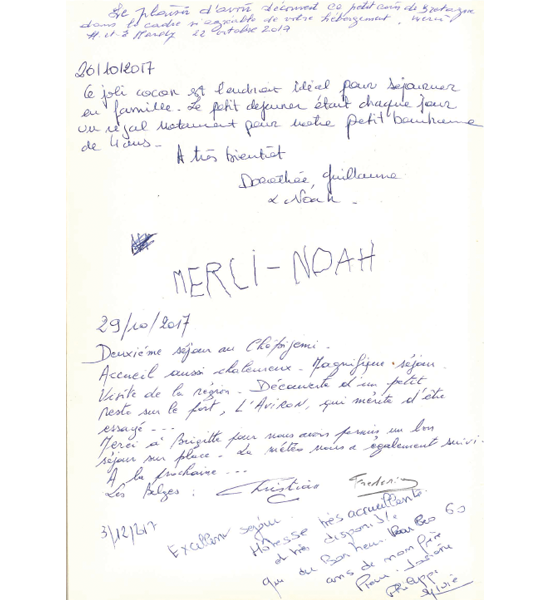 Le plaisir d'avoir découvert ce petit coin de Bretagne
dans le cadre si agréable de votre hébergement, merci
H. et 22 octobre 2017
26/10/2017
Ce joli cocon est l'endroit idéal pour séjourner
en famille. Le petit dejeuner était chaque jour
un régal notamment pour notre petit bonhomme
de 4 ans -
A très bientôt
Dorothée, Guillaume
& Noah -
MERCI - NOAH
29/10/2017
Deuxième séjour au
Accueil aussi chaleureux - Magnifique séjour
Visite de la région - Découverte d'un petit
resto sur le port, L'AVIRON, qui mérite d'être
essayé ---
Merci à Brigitte pour nous avoir permis un bon
séjour sur place - La météo nous a également suivi.
A la prochaine ---
Les Belges : Christian Frederic
3/12/2017
Excellent séjour.
Hôtesse très accueillante
et très disponible
que du Bonheur 60
ans de mon père
Philippe
Sylvie